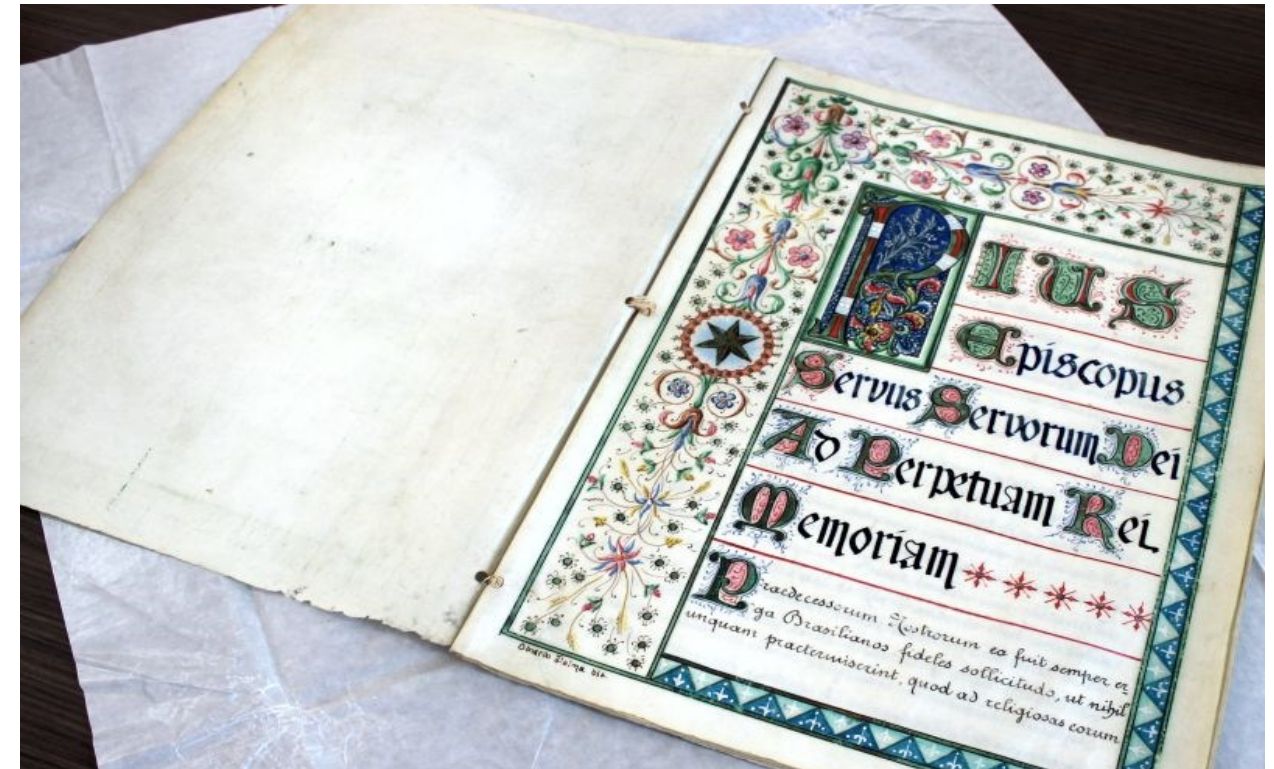 PIUS
Episcopus
Servus Servorum Dei
Ad Perpetuam Rei
Memoriam
Praedecessorum Nostrorum ea fuit semper er
ga Brasilianos fideles sollicitudo, ut nihil
unquam praetermiserint, quod ad religiosas eorum